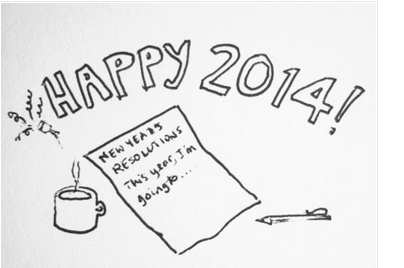 HAPPY 2014!
NEW YEARS
RESOLUTIONS
This year, I'm
going to....